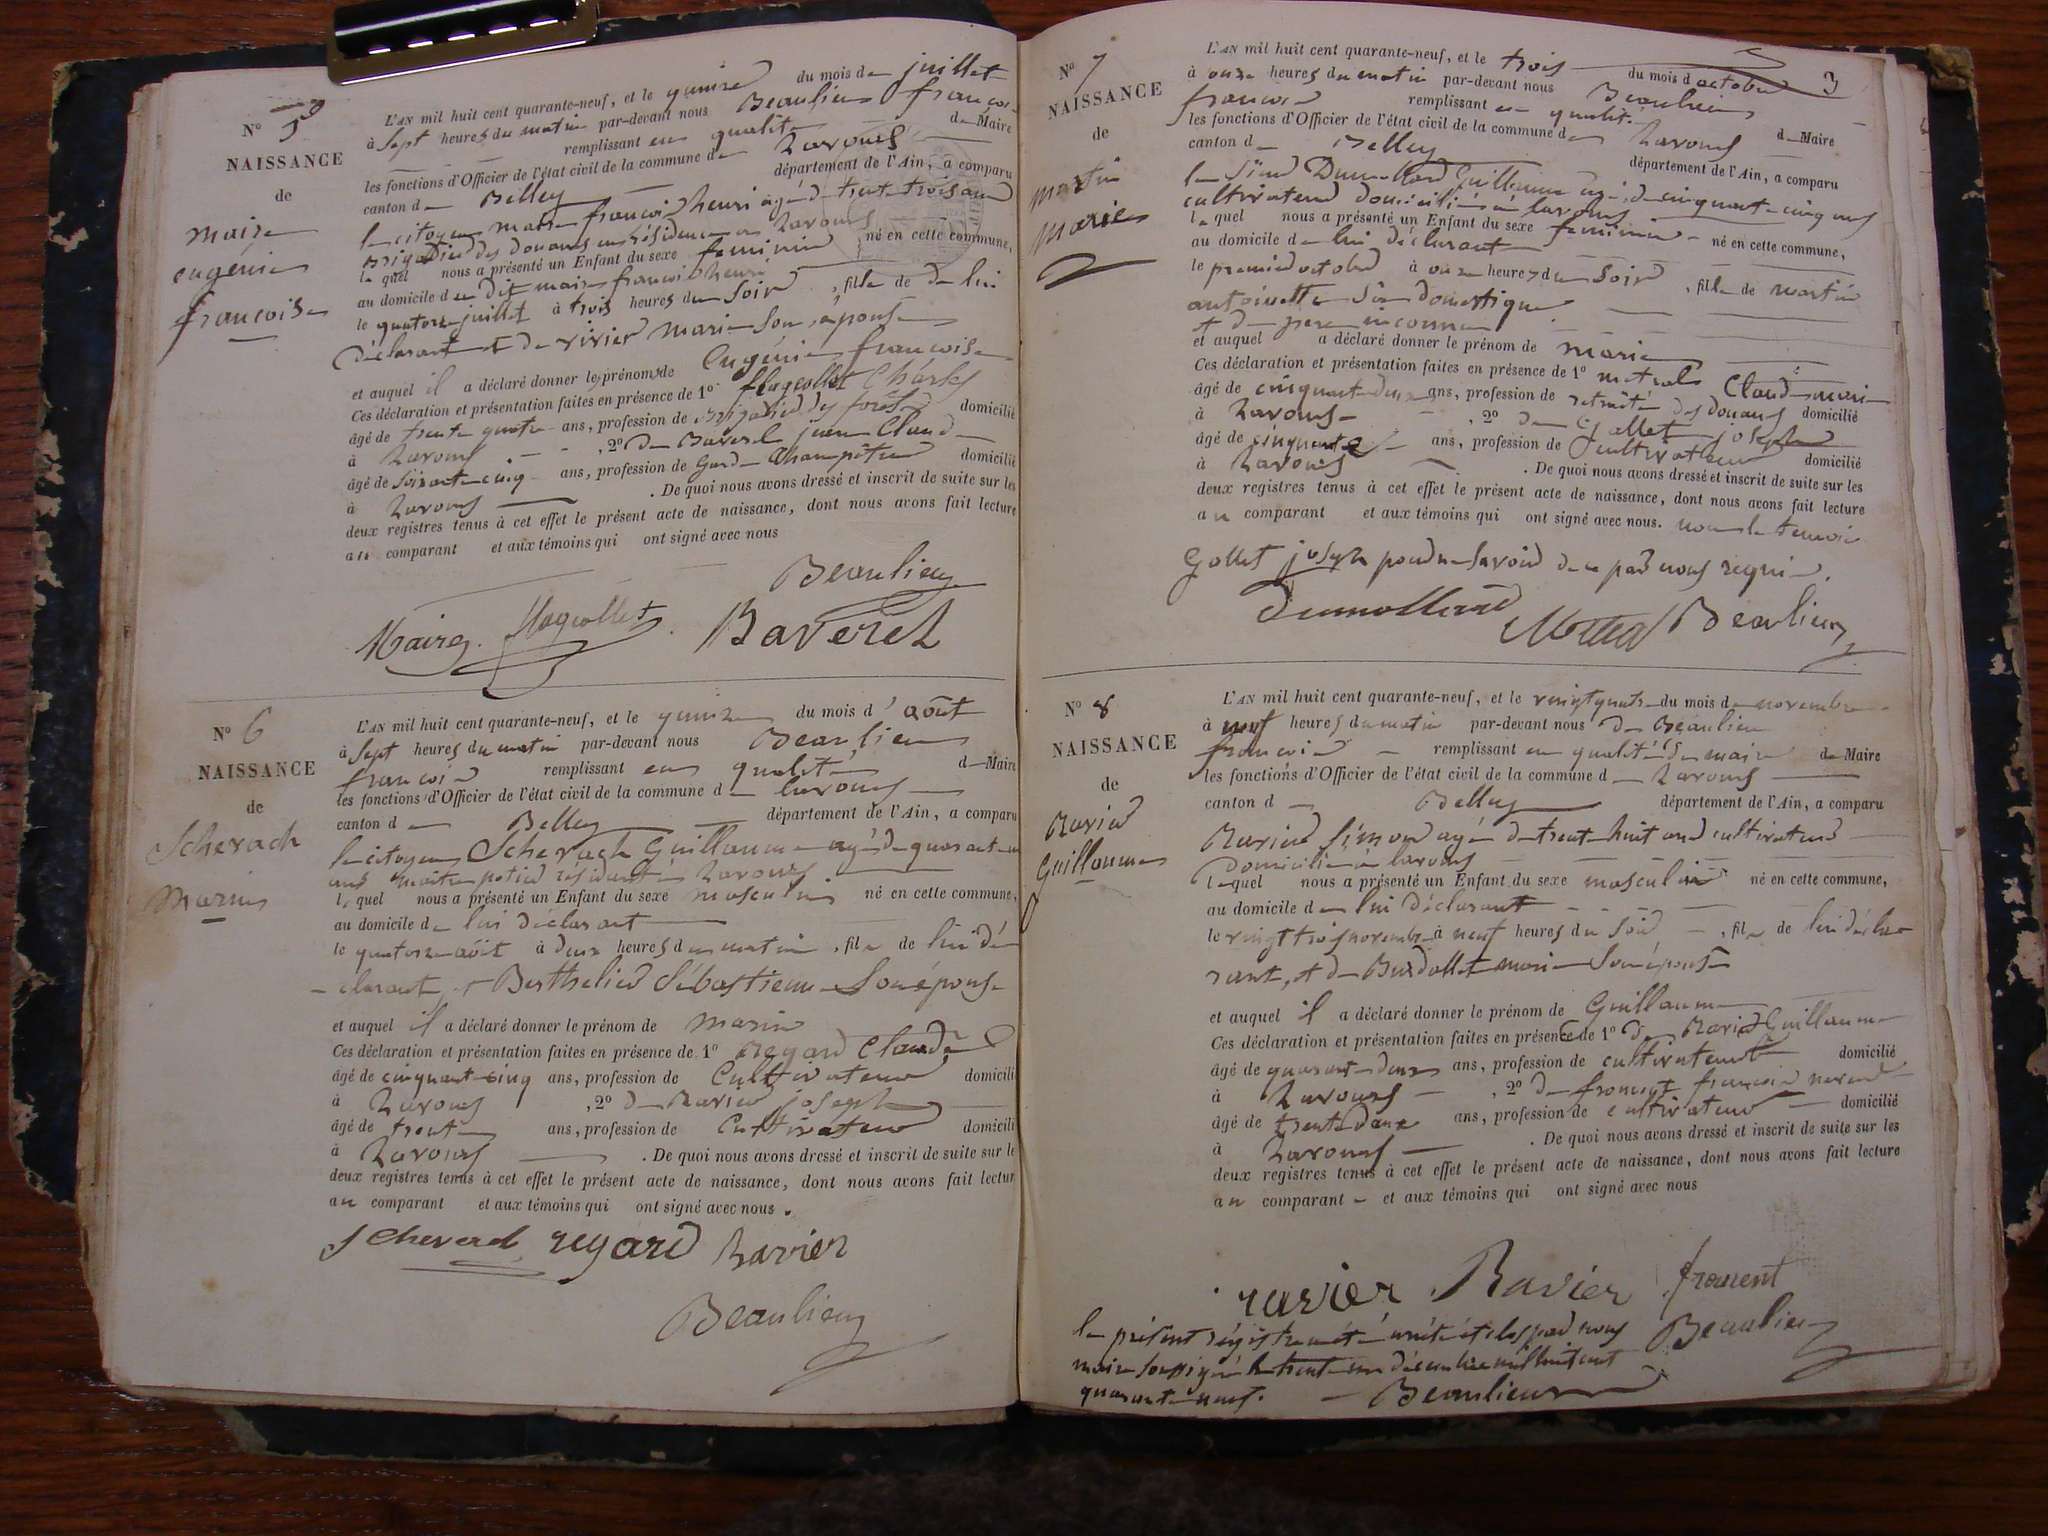 N° 5
NAISSANCE
de
maire
eugénie
françoise
L'AN mil huit cent quarante-neuf, et le quinze du mois de juillet
à sept heures du matin par-devant nous Beaulieu françois
remplissant en qualité de Maire
les fonctions d'Officier de l'état civil de la commune de Lavours
canton de Belley département de l'Ain, a comparu
le citoyen maire françois henri agé de trente trois ans
brigadier des douanes en résidence à Lavours
lequel nous a présenté un Enfant du sexe feminin né en cette commune,
au domicile du dit maire françois henri
le quatorze juillet à trois heures du soir, fille de de lui
déclarant et de rivier marie son épouse
et auquel il a déclaré donner les prénoms de Eugénie françoise
Ces déclaration et présentation faites en présence de 1° flageollet Charles
âgé de trente quatre ans, profession de brigadier des forêts domicilié
à Lavours, 2° de Baverel jean Claude
âgé de soixante cinq ans, profession de Garde Champêtre domicilié
à Lavours. De quoi nous avons dressé et inscrit de suite sur les
deux registres tenus à cet effet le présent acte de naissance, dont nous avons fait lecture
au comparant et aux témoins qui ont signé avec nous
Beaulieu
Maire flageollet Baverel
N° 6
NAISSANCE
de
Scherach
Marin
L'AN mil huit cent quarante-neuf, et le quinze du mois d'août
à sept heures du matin par-devant nous Beaulieu
françois remplissant en qualité de Maire
les fonctions d'Officier de l'état civil de la commune de lavours
canton de Belley département de l'Ain, a comparu
le citoyen Scherach Guillaume agé de quarante
ans maître potier résidant à Lavours
lequel nous a présenté un Enfant du sexe masculin né en cette commune,
au domicile de lui déclarant
le quatorze août à deux heures du matin, fils de lui dé
clarant et Berthelier Sébastienne son épouse
et auquel il a déclaré donner le prénom de marin
Ces déclaration et présentation faites en présence de 1° Regard Claude
âgé de cinquante cinq ans, profession de Cultivateur domicili
à Lavours, 2° de Ravier joseph
âgé de trente ans, profession de Cultivateur domicili
à Lavours. De quoi nous avons dressé et inscrit de suite sur le
deux registres tenus à cet effet le présent acte de naissance, dont nous avons fait lectur
au comparant et aux témoins qui ont signé avec nous.
regard Ravier
Beaulieu
3
N° 7
NAISSANCE
de
martin
marie
L'AN mil huit cent quarante-neuf, et le trois du mois d octobre
à onze heures du matin par-devant nous Beaulieu
françois remplissant en qualité de Maire
les fonctions d'Officier de l'état civil de la commune de Lavours
canton de Belley département de l'Ain, a comparu
le Sieur Dumollard Guillaume agé de cinquante cinq ans
cultivateur domicilié à lavours
lequel nous a présenté un Enfant du sexe feminin né en cette commune,
au domicile de lui déclarant
le premier octobre à onze heures du soir, fille de martin
antoinette domestique
et de père inconnu
et auquel a déclaré donner le prénom de marie
Ces déclaration et présentation faites en présence de 1° métral Claude marie
âgé de cinquante deux ans, profession de retraité des douanes domicilié
à Lavours, 2° de Gollet joseph
âgé de cinquante ans, profession de cultivateur domicilié
à Lavours. De quoi nous avons dressé et inscrit de suite sur les
deux registres tenus à cet effet le présent acte de naissance, dont nous avons fait lecture
au comparant et aux témoins qui ont signé avec nous. non le temoin
Gollet joseph pour ne savoir de ce par nous requis.
Dumollard Métral Beaulieu
N° 8
NAISSANCE
de
Ravier
Guillaume
L'AN mil huit cent quarante-neuf, et le vingt quatre du mois de novembre
à neuf heures du matin par-devant nous de Beaulieu
françois remplissant en qualité de maire de Maire
les fonctions d'Officier de l'état civil de la commune de Lavours
canton d Belley département de l'Ain, a comparu
Ravier Simon agé de trente huit ans cultivateur
domicilié à lavours
lequel nous a présenté un Enfant du sexe masculin né en cette commune,
au domicile de lui déclarant
le vingt trois novembre à neuf heures du soir, fils de lui décla
rant, et de Burdollet marie son épouse
et auquel il a déclaré donner le prénom de Guillaume
Ces déclaration et présentation faites en présence de 1° de Ravier Guillaume
âgé de quarante deux ans, profession de cultivateur domicilié
à Lavours, 2° de froment françois
âgé de trente deux ans, profession de cultivateur domicilié
à Lavours. De quoi nous avons dressé et inscrit de suite sur les
deux registres tenus à cet effet le présent acte de naissance, dont nous avons fait lecture
au comparant et aux témoins qui ont signé avec nous
ravier Ravier froment
Beaulieu
le présent régistre a été arrêté et clos par nous
maire soussigné le trente un décembre mil huit cent
quarante neuf. Beaulieu